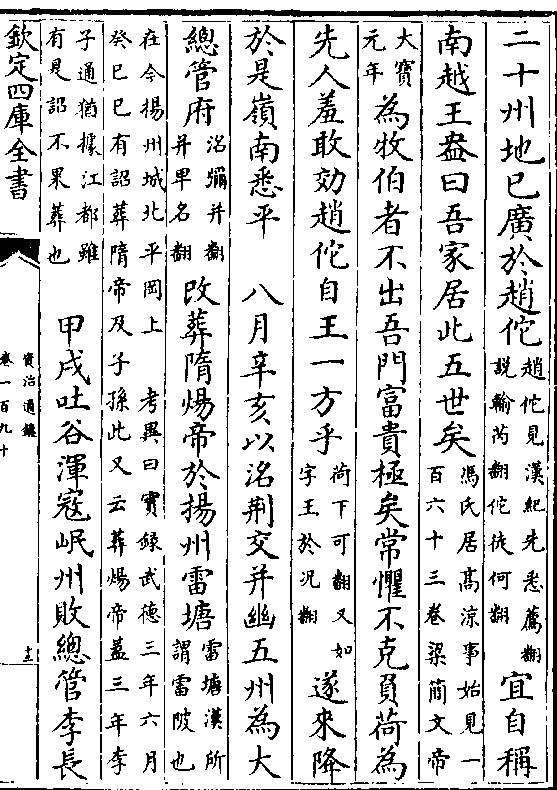 二十州地已廣於趙佗趙佗見漢紀先悉薦翻說輸芮翻佗徒何翻宜自稱
南越王盎曰吾家居此五世矣馮氏居髙涼事始見一百六十三卷梁簡文帝
大寶元年為牧伯者不出吾門富貴極矣常懼不克負荷為
先人羞敢効趙佗自王一方乎荷下可翻又如字王於况翻遂來降
於是嶺南悉平　八月辛亥以洺荆交并幽五州為大
總管府洺彌并翻并卑名翻改葬隋煬帝於揚州雷塘雷塘漢所謂雷陂也
在今揚州城北平岡上　考異曰實録武德三年六月癸巳已有詔葬隋帝及子孫此又云葬煬帝葢三年李
子通猶據江都雖有見詔不果葬也　甲戌吐谷渾寇岷州敗總管李長
欽定四庫全書
資治通鑑
卷一百九十
十三